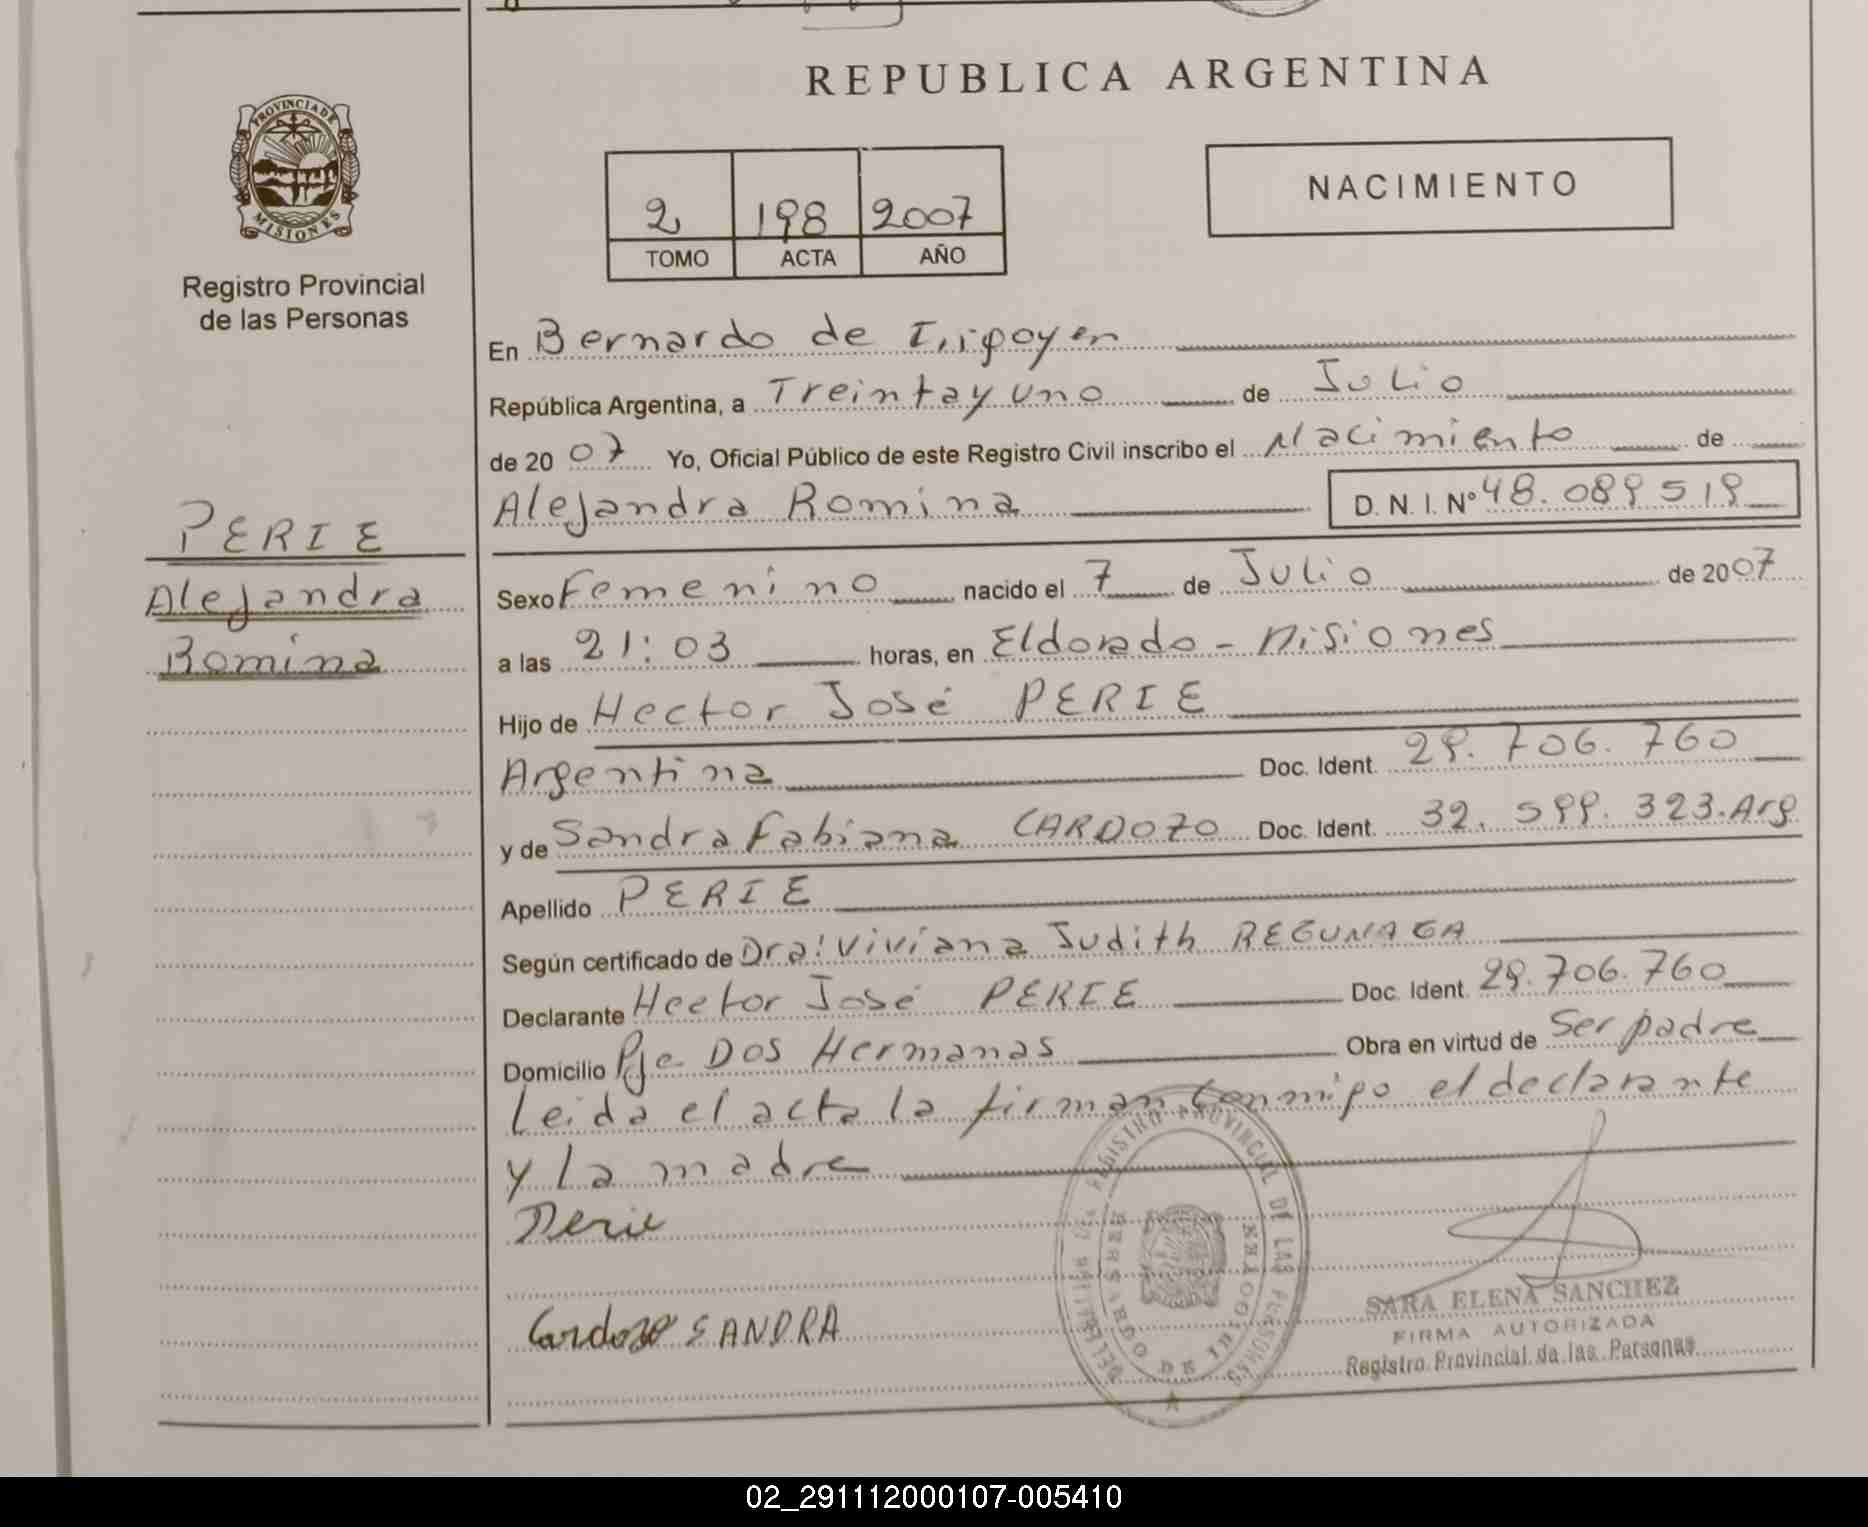 REPUBLICA ARGENTINA
PROVINCIA DE
MISIONES
Registro Provincial
de las Personas
2 198 2007
TOMO ACTA AÑO
NACIMIENTO
En Bernardo de Irigoyen
República Argentina, a Treinta y uno de Julio
de 2007 Yo, Oficial Público de este Registro Civil inscribo el Nacimiento de
Alejandra Romina D. N. I. Nº 48.089519
PERIE
Alejandra
Romina
Sexo Femenino nacido el 7 de Julio de 2007
a las 21:03 horas, en Eldorado - Misiones
Hijo de Hector José PERIE
Argentina Doc. Ident. 29.706.760
y de Sandra Fabiana CARDOZO Doc. Ident. 32.599.323.Arg
Apellido PERIE
Según certificado de Dra: Viviana Judith REGUNAGA
Declarante Hector José PERIE Doc. Ident. 29.706.760
Domicilio Pje Dos Hermanas Obra en virtud de Ser padre
Leida el acta la firman conmigo el declarante
y la madre
Perie
Cardozo SANDRA
REGISTRO PROVINCIAL DE LAS PERSONAS
BERNARDO DE IRIGOYEN
SARA ELENA SANCHEZ
FIRMA AUTORIZADA
Registro Provincial de las Personas
02_291112000107-005410